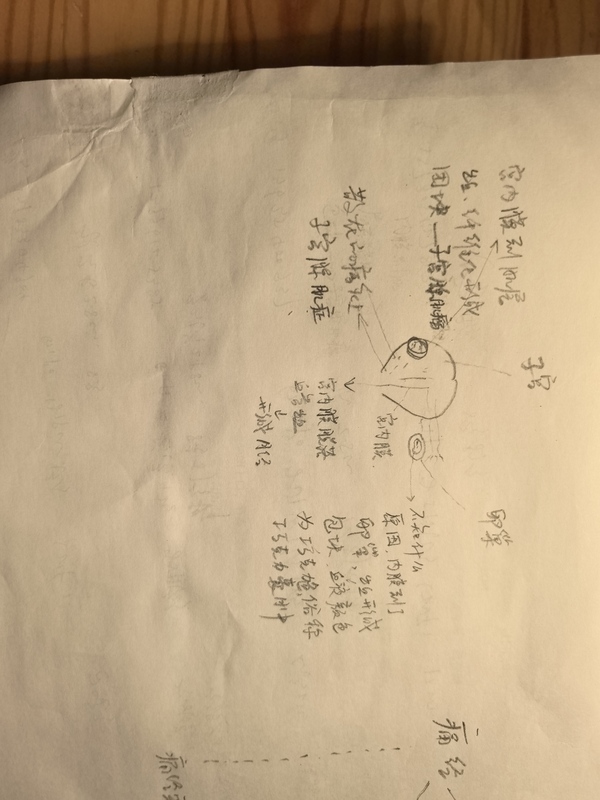 宫内膜到肌层
出血、纤维化形成
团块—子宫腺肌瘤
散在的病灶
子宫腺肌症
子宫
宫内膜脱落
出血
形成月经
宫内膜
卵巢
不知什么
原因，内膜到了
卵巢，出血形成
包块，颜色
为巧克力色，俗称
巧克力囊肿
痛经
痛经